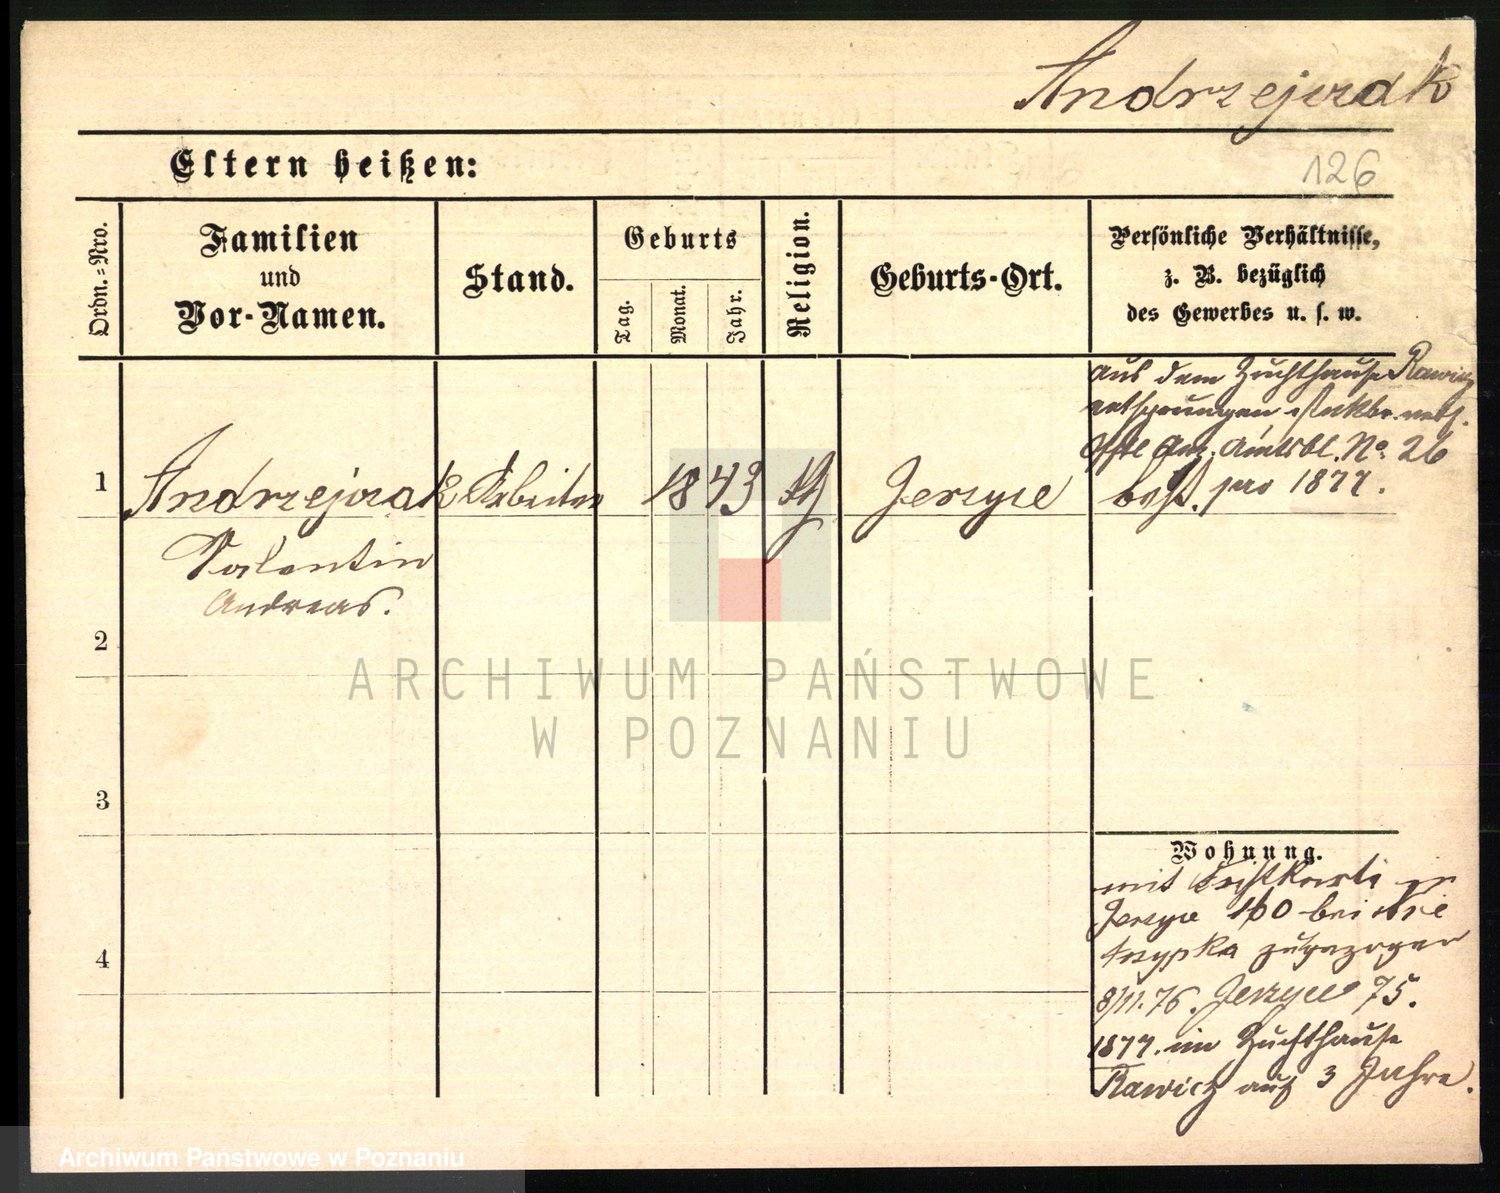 Andrzejczak
126
Eltern heißen:
Ordn.=Nro.
Familien
und
Vor-Namen.
Stand.
Geburts
Tag.
Monat.
Jahr.
Religion.
Geburts-Ort.
Persönliche Verhältnisse,
z. B. bezüglich
des Gewerbes u. s. w.
aus dem Zuchthause Rawicz
entsprungen
Amtsbl. No. 26
pro 1877.
1
Andrzejczak Arbeiter 1843 Jerzyce
Valentin
Andreas.
2
3
4
Wohnung.
mit in
Jerzyce 160 bei
zugezogen
8/11. 76. Jerzyce 75.
1877. im Zuchthause
Rawicz auf 3 Jahre.
ARCHIWUM PAŃSTWOWE
W POZNANIU
Archiwum Państwowe w Poznaniu